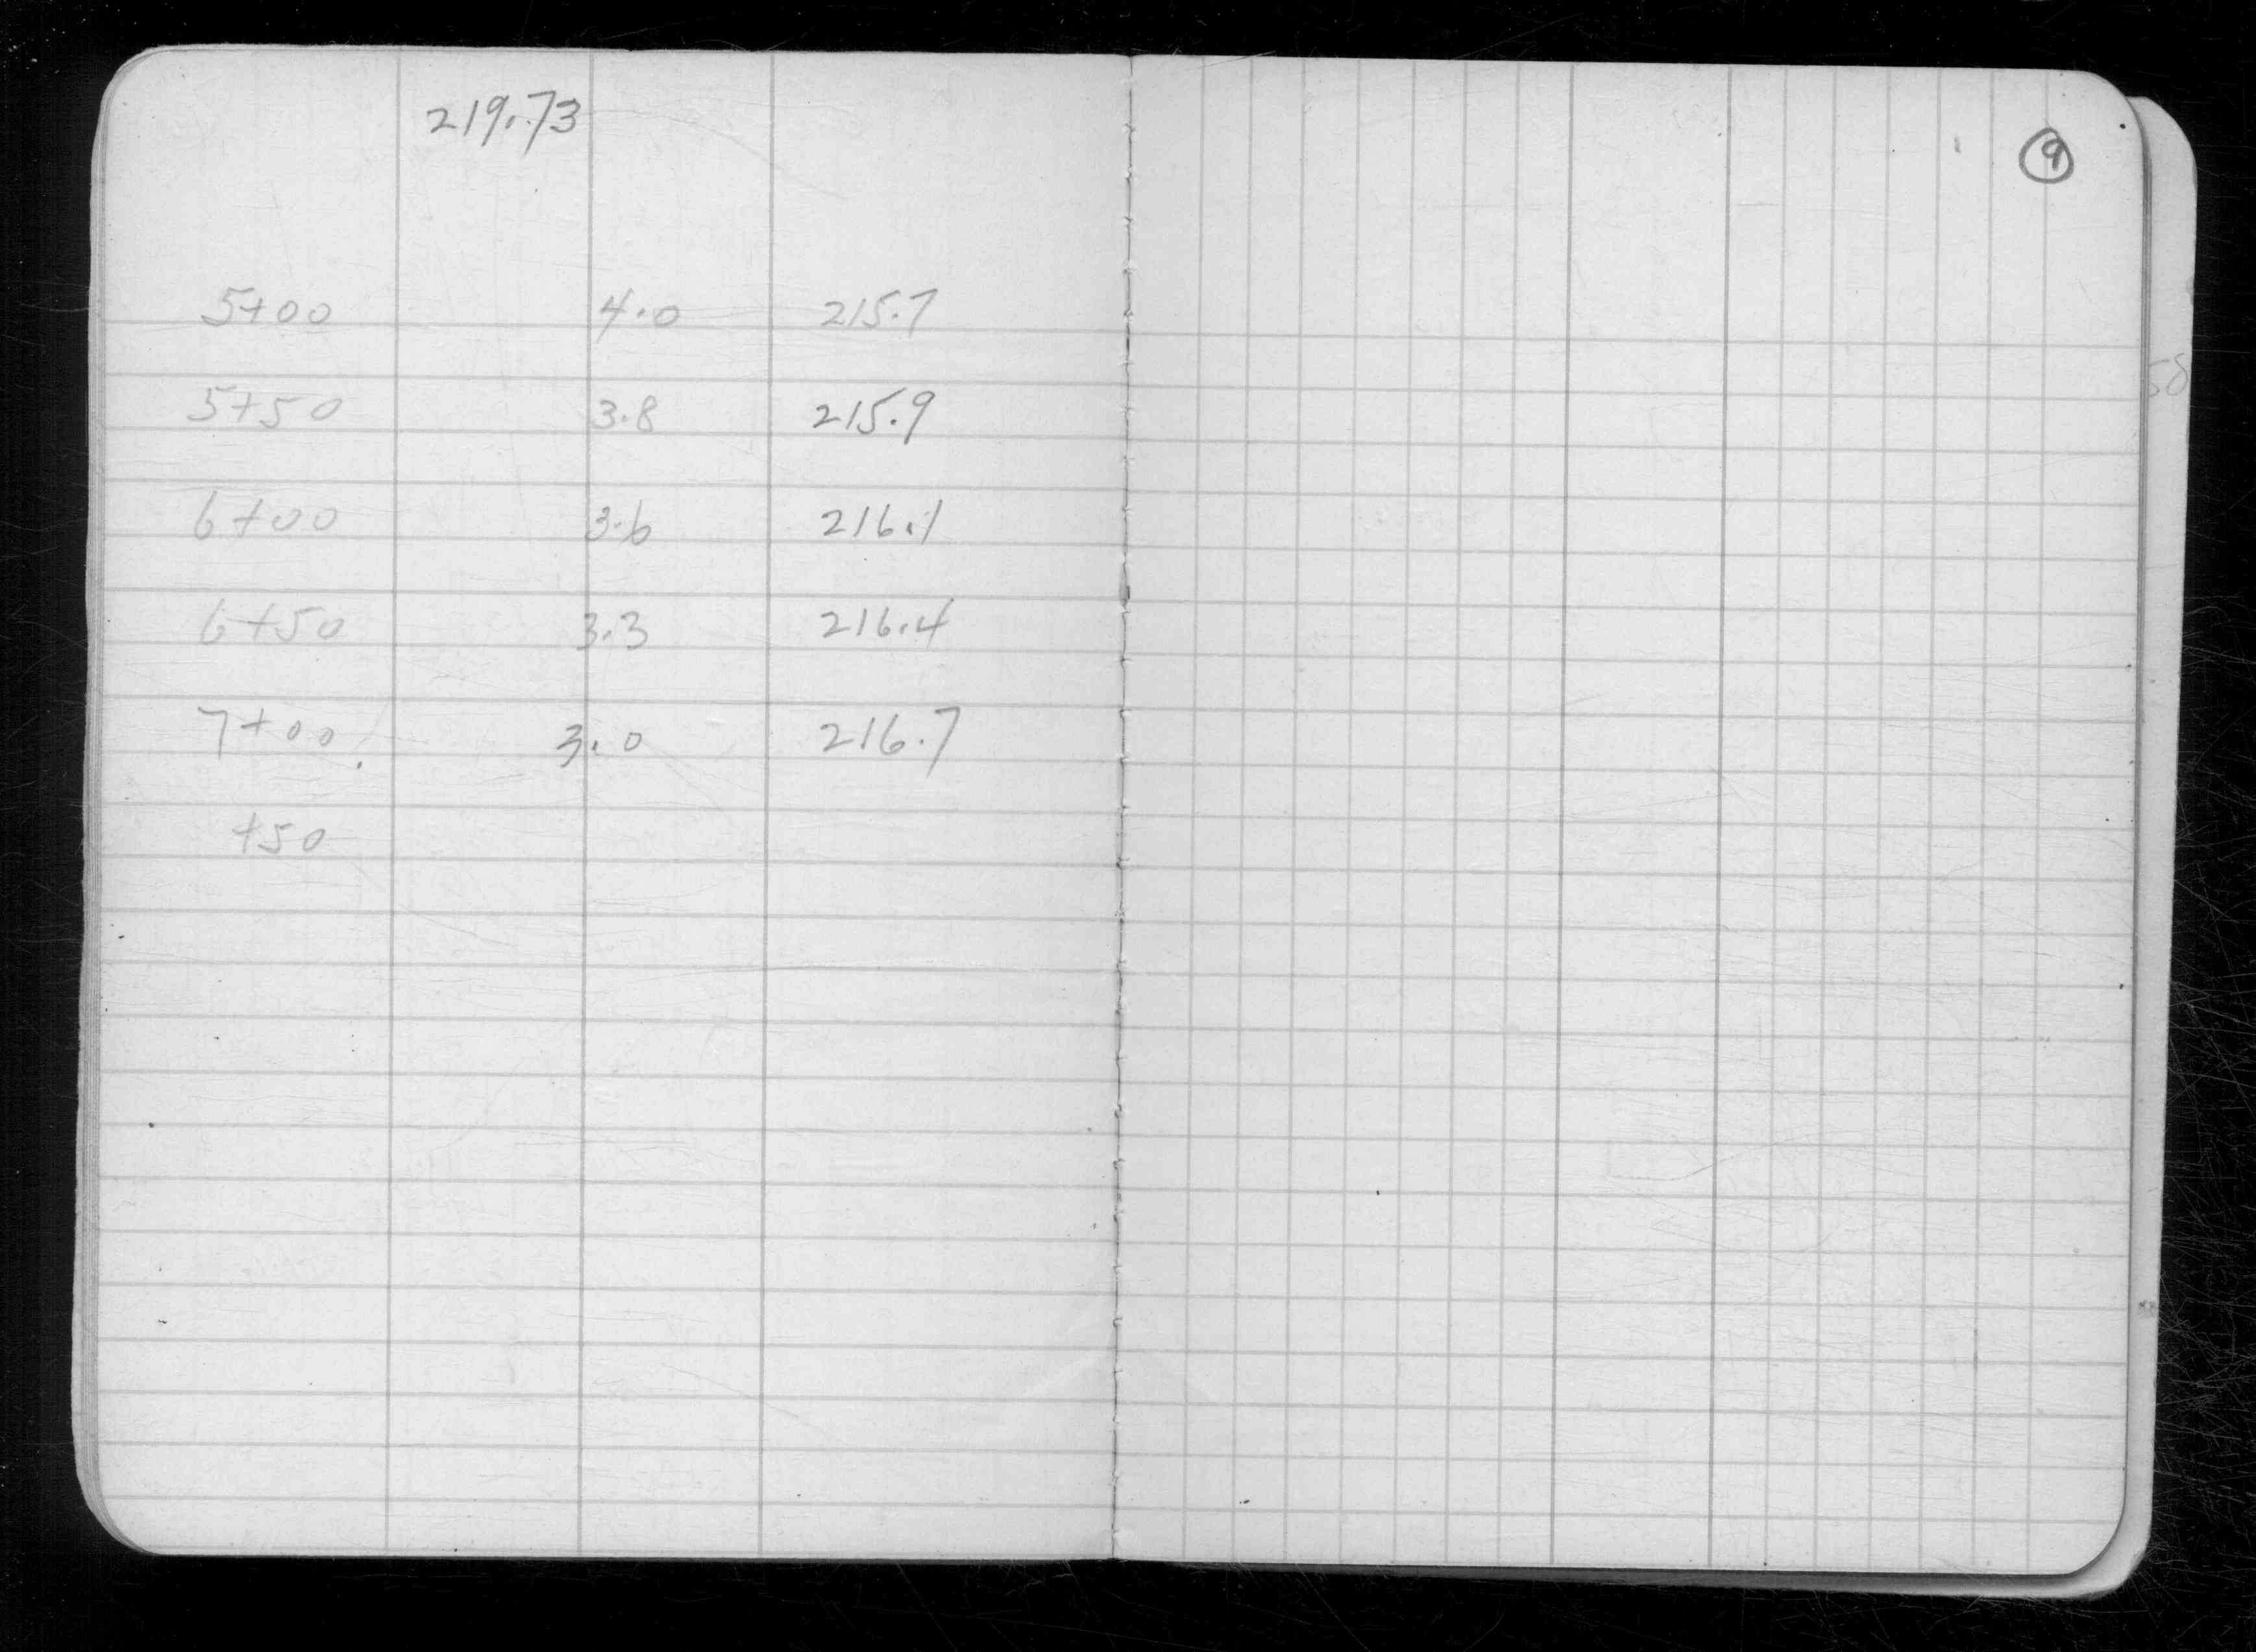 219.73
9
5+00 4.0 215.7
5+50 3.8 215.9
6+00 3.6 216.1
6+50 3.3 216.4
7+00 3.0 216.7
+50
58